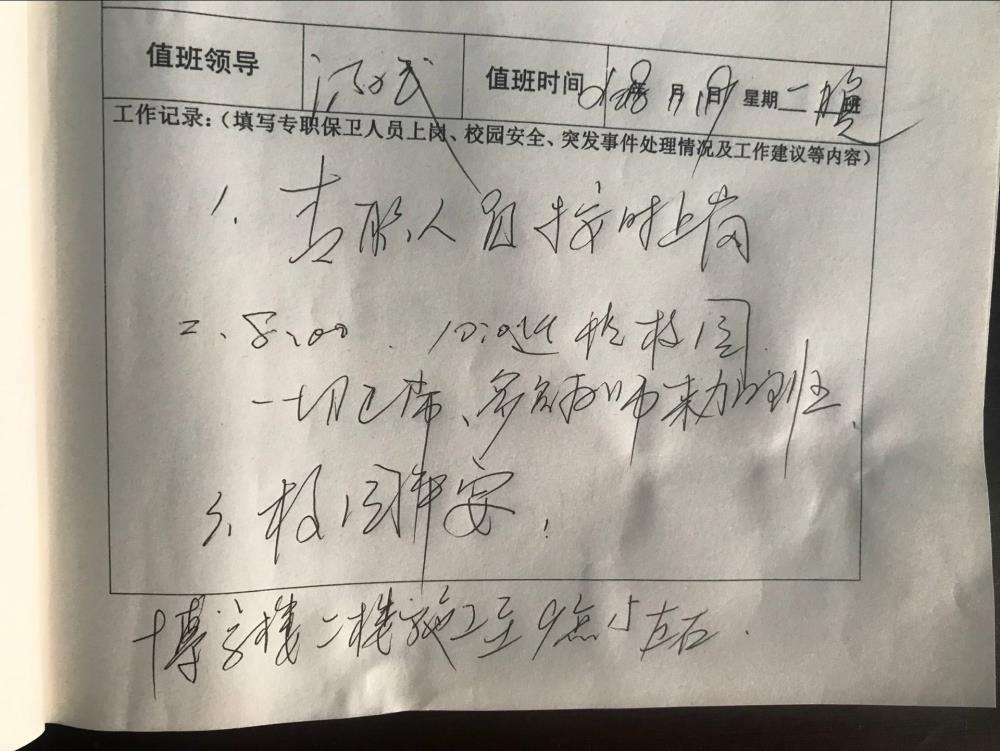 值班领导 值班时间 月 日 星期二 晚班
工作记录：（填写专职保卫人员上岗、校园安全、突发事件处理情况及工作建议等内容）
1、专职人员按时上岗
二、8:00、10:00巡检校园
一切正常、来加班、
3、校园平安、
博学楼二楼施工至9点45左右.